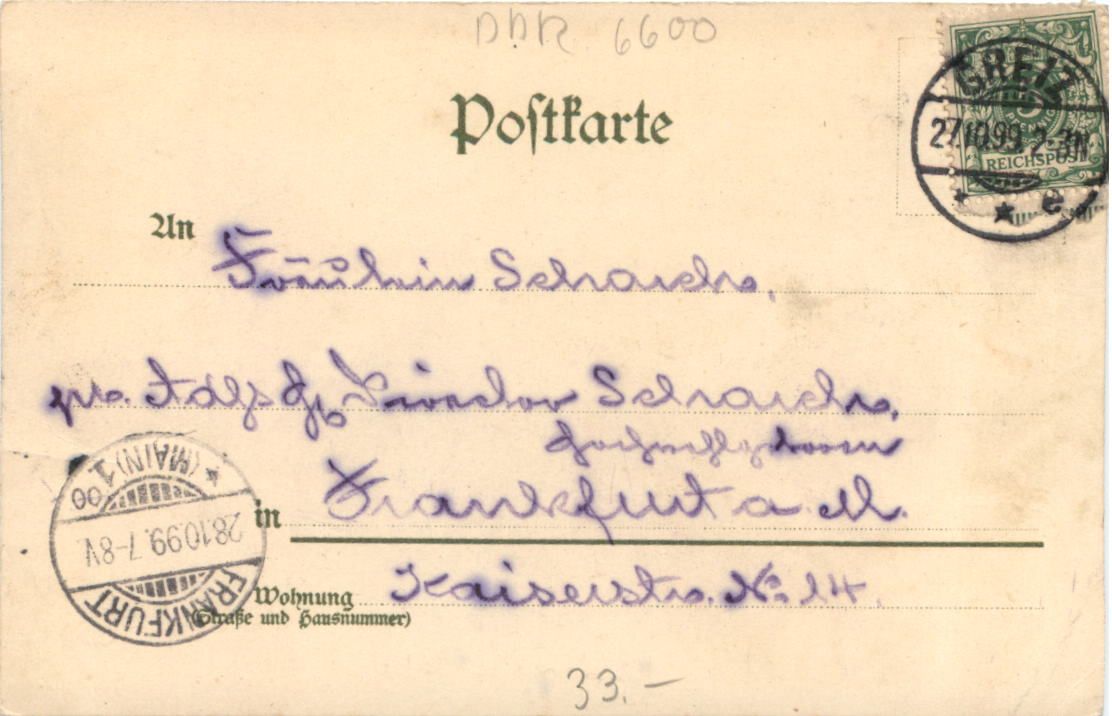 DDR 6600
Postkarte
GREIZ
27.10.99. 2-3N.
* * e
PFENNIG
REICHSPOST
An
Fräulein Schrauch,
Director Schrauch,
in Frankfurt a. M.
Wohnung Kaiserstr. No 14.
(Straße und Hausnummer)
FRANKFURT
28.10.99. 7-8V.
* (MAIN) 1
00
33.-